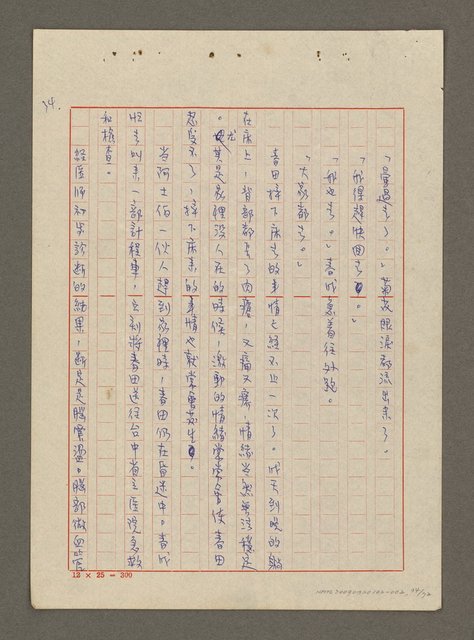 34.
「暈過去了。」菊放眼淚都流出來了。
「那得趕快回去。」
「我也去。」春成急着往外跑。
「大家都去。」
春田摔下床去的事情已經不止一次了。成天到晚的躺
在床上,背部都長了肉瘡,又痛又癢,情緒当然無法穩定
。尤其是家裡沒人在的時候,激動的情緒常常會使春田
忍受不了,摔下床來的事情也就常會發生。
当阿士伯一伙人趕到家裡時,春田仍在昏迷中。春成
恨去叫來一部計程車,立刻將春田送往台中省立医院急救
和檢查。
經医师初步診断的結果,断定是腦震盪。腦部微血管
12 × 25 = 300
34/72